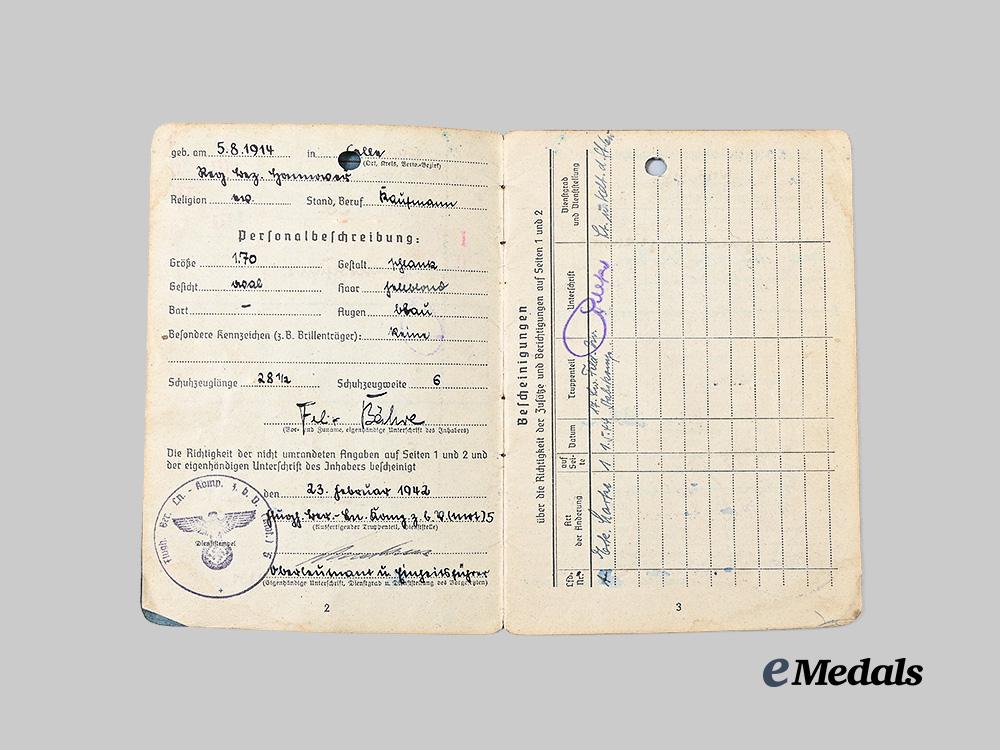 geb. am 5.8.1914 in Celle
(Ort, Kreis, Verw.-Bezirk)
Reg. Bez. Hannover
Religion ev. Stand, Beruf Kaufmann
Personalbeschreibung:
Größe 1.70 Gestalt schlank
Gesicht oval Haar hellblond
Bart – Augen blau
Besondere Kennzeichen (z.B. Brillenträger): keine
Schuhzeuglänge 28 1/2 Schuhzeugweite 6
Felix Bähre
(Vor- und Zuname, eigenhändige Unterschrift des Inhabers)
Die Richtigkeit der nicht umrandeten Angaben auf Seiten 1 und 2 und
der eigenhändigen Unterschrift des Inhabers bescheinigt
den 23. Februar 1942
Flugh. Ber.-Ln. Komp. z. b. V. (mot) 5
(Ausfertigender Truppenteil, Dienststelle)
Oberleutnant u. Einheitsführer
(Eigenhändige Unterschrift, Dienstgrad u. Dienststellung des Vorgesetzten)
Flugh. Ber. Ln. - Komp. z. b. V. (mot.) 5
Dienststempel
2
Bescheinigungen
über die Richtigkeit der Zusätze und Berichtigungen auf Seiten 1 und 2
Lfd. Nr. Art der Änderung auf Seite Datum Truppenteil Unterschrift Dienstgrad und Dienststellung
1 1.5.44
3
eMedals